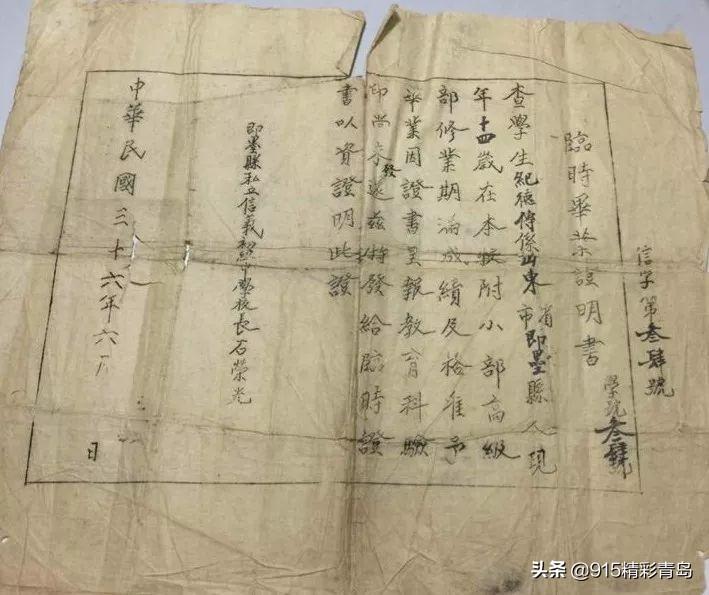 信字第叁肆號
學號叁號
臨時畢業證明書
查學生紀德傳係山東省市即墨縣人現
年十四歲在本校附小部高級
部修業期滿成績及格准予
畢業因證書呈報教育科驗
印尚未發還茲特發給臨時證
書以資證明此證
即墨縣私立信義初中學校長石榮光
中華民國三十六年六月 日
头条 @915精彩青岛